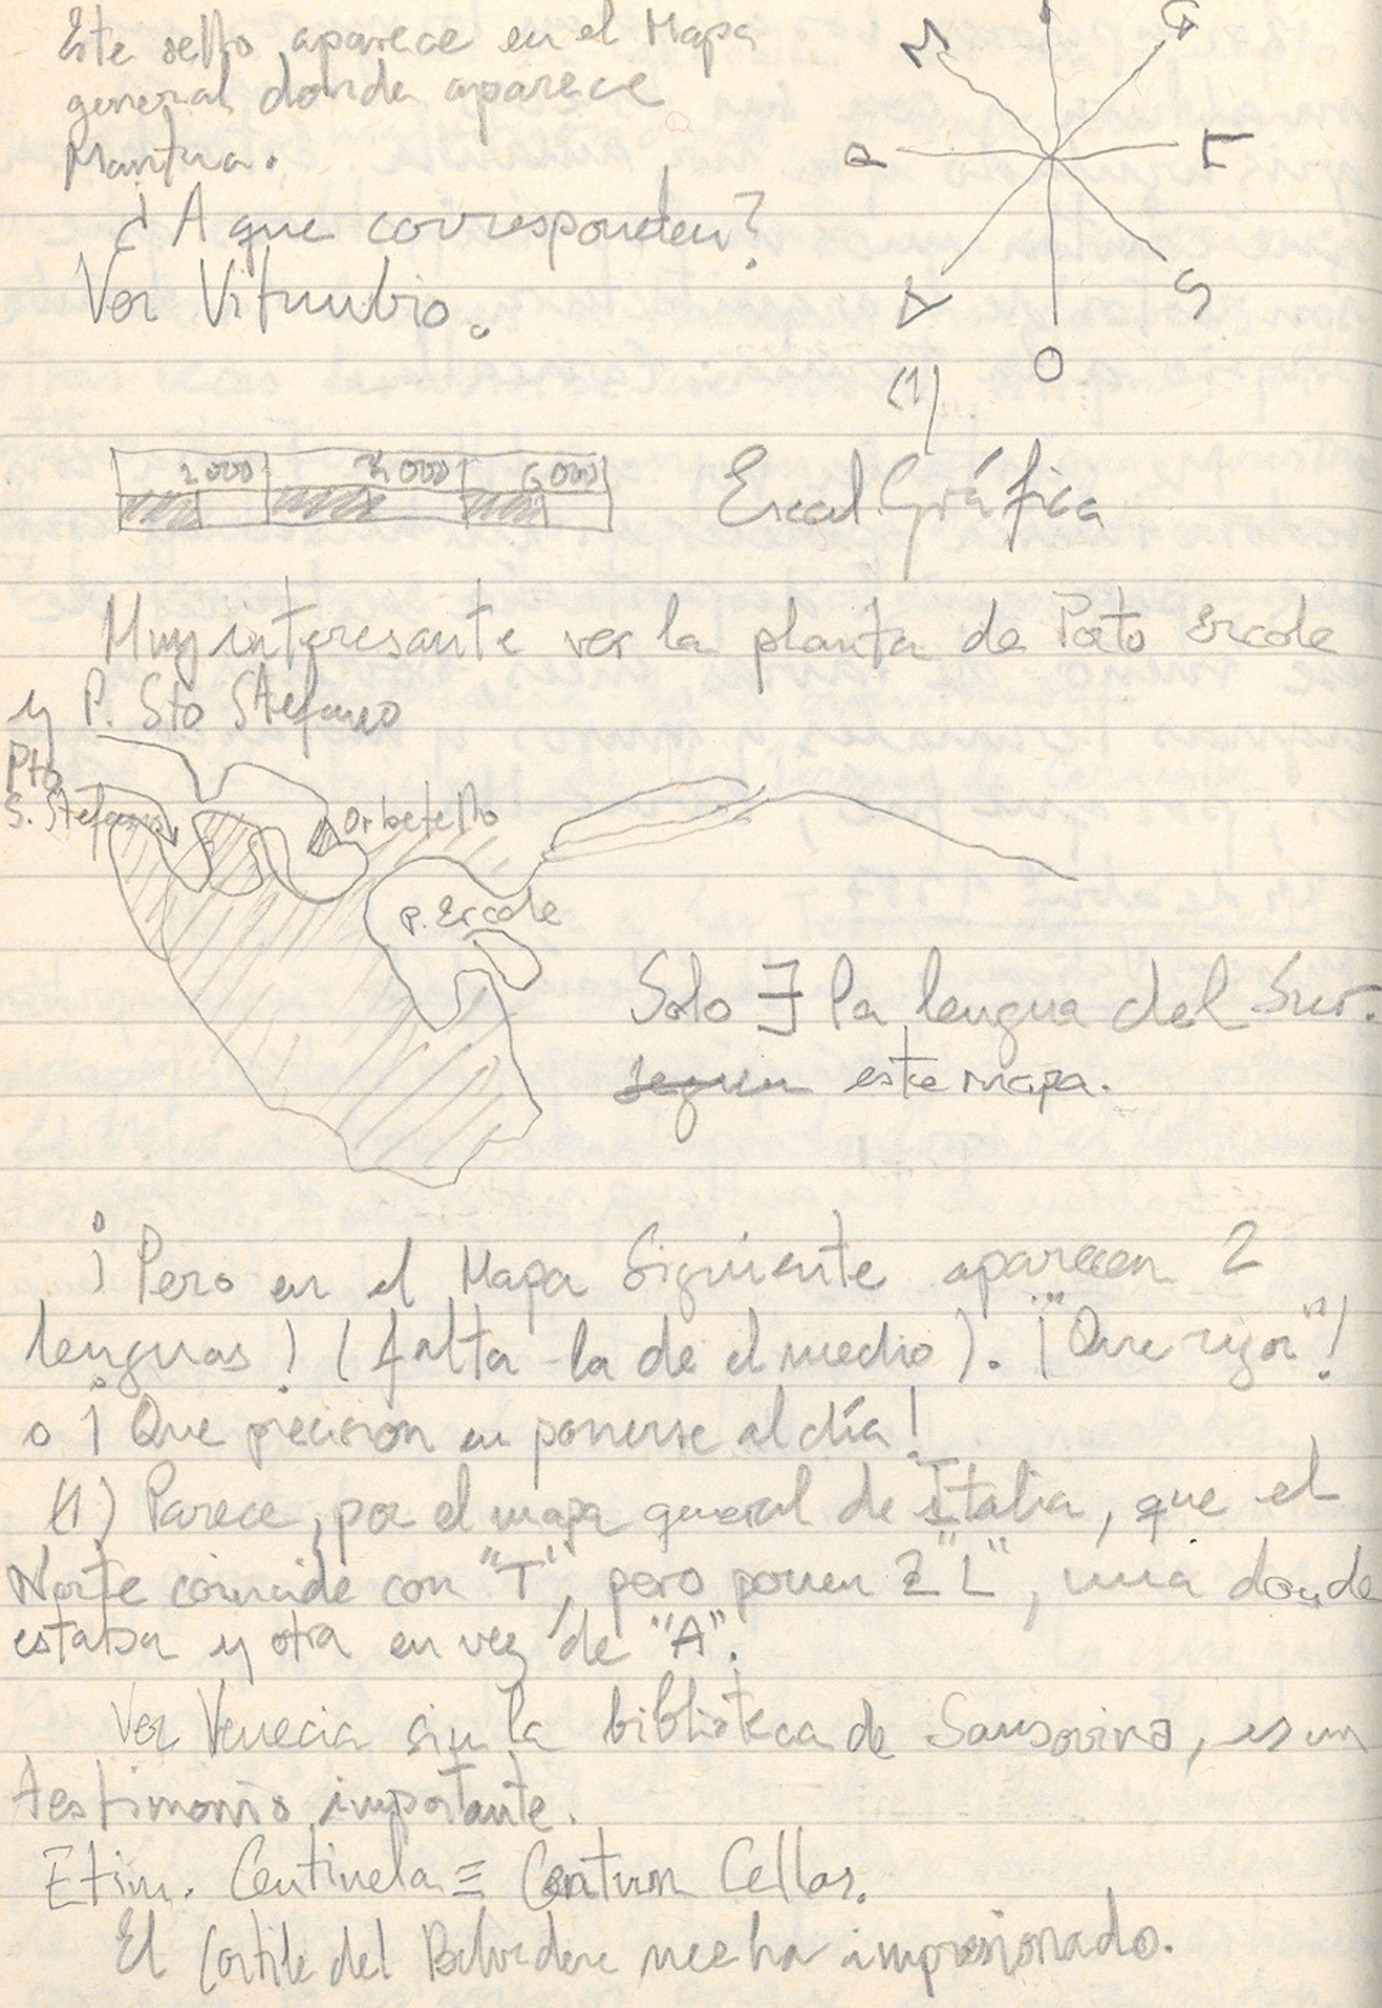 Este sello aparece en el Mapa
general donde aparece
Mantua.
¿A que corresponden?
Ver Vitrubio.
M
G
P
L
A
S
O
(1)
2000
4000
6000
Escal Gráfica
Muy interesante ver la planta de Porto Ercole
y P. Sto Stefano
Pto
S. Stefano
Orbetello
P. Ercole
Solo ∃ la lengua del Sur.
segun este mapa.
¡Pero en el Mapa Siguiente aparecen 2
lenguas! (falta la de el medio). ¡"Que rigor"!
o ¡Que precision en ponerse al día!
(1) Parece, por el mapa general de Italia, que el
Norte coincide con "T", pero ponen 2 "L", una donde
estaba y otra en vez de "A".
Ver Venecia sin la biblioteca de Sansovino, es un
testimonio importante.
Etim. Centinela ≡ Centum Cellas.
El Cortile del Belvedere me ha impresionado.